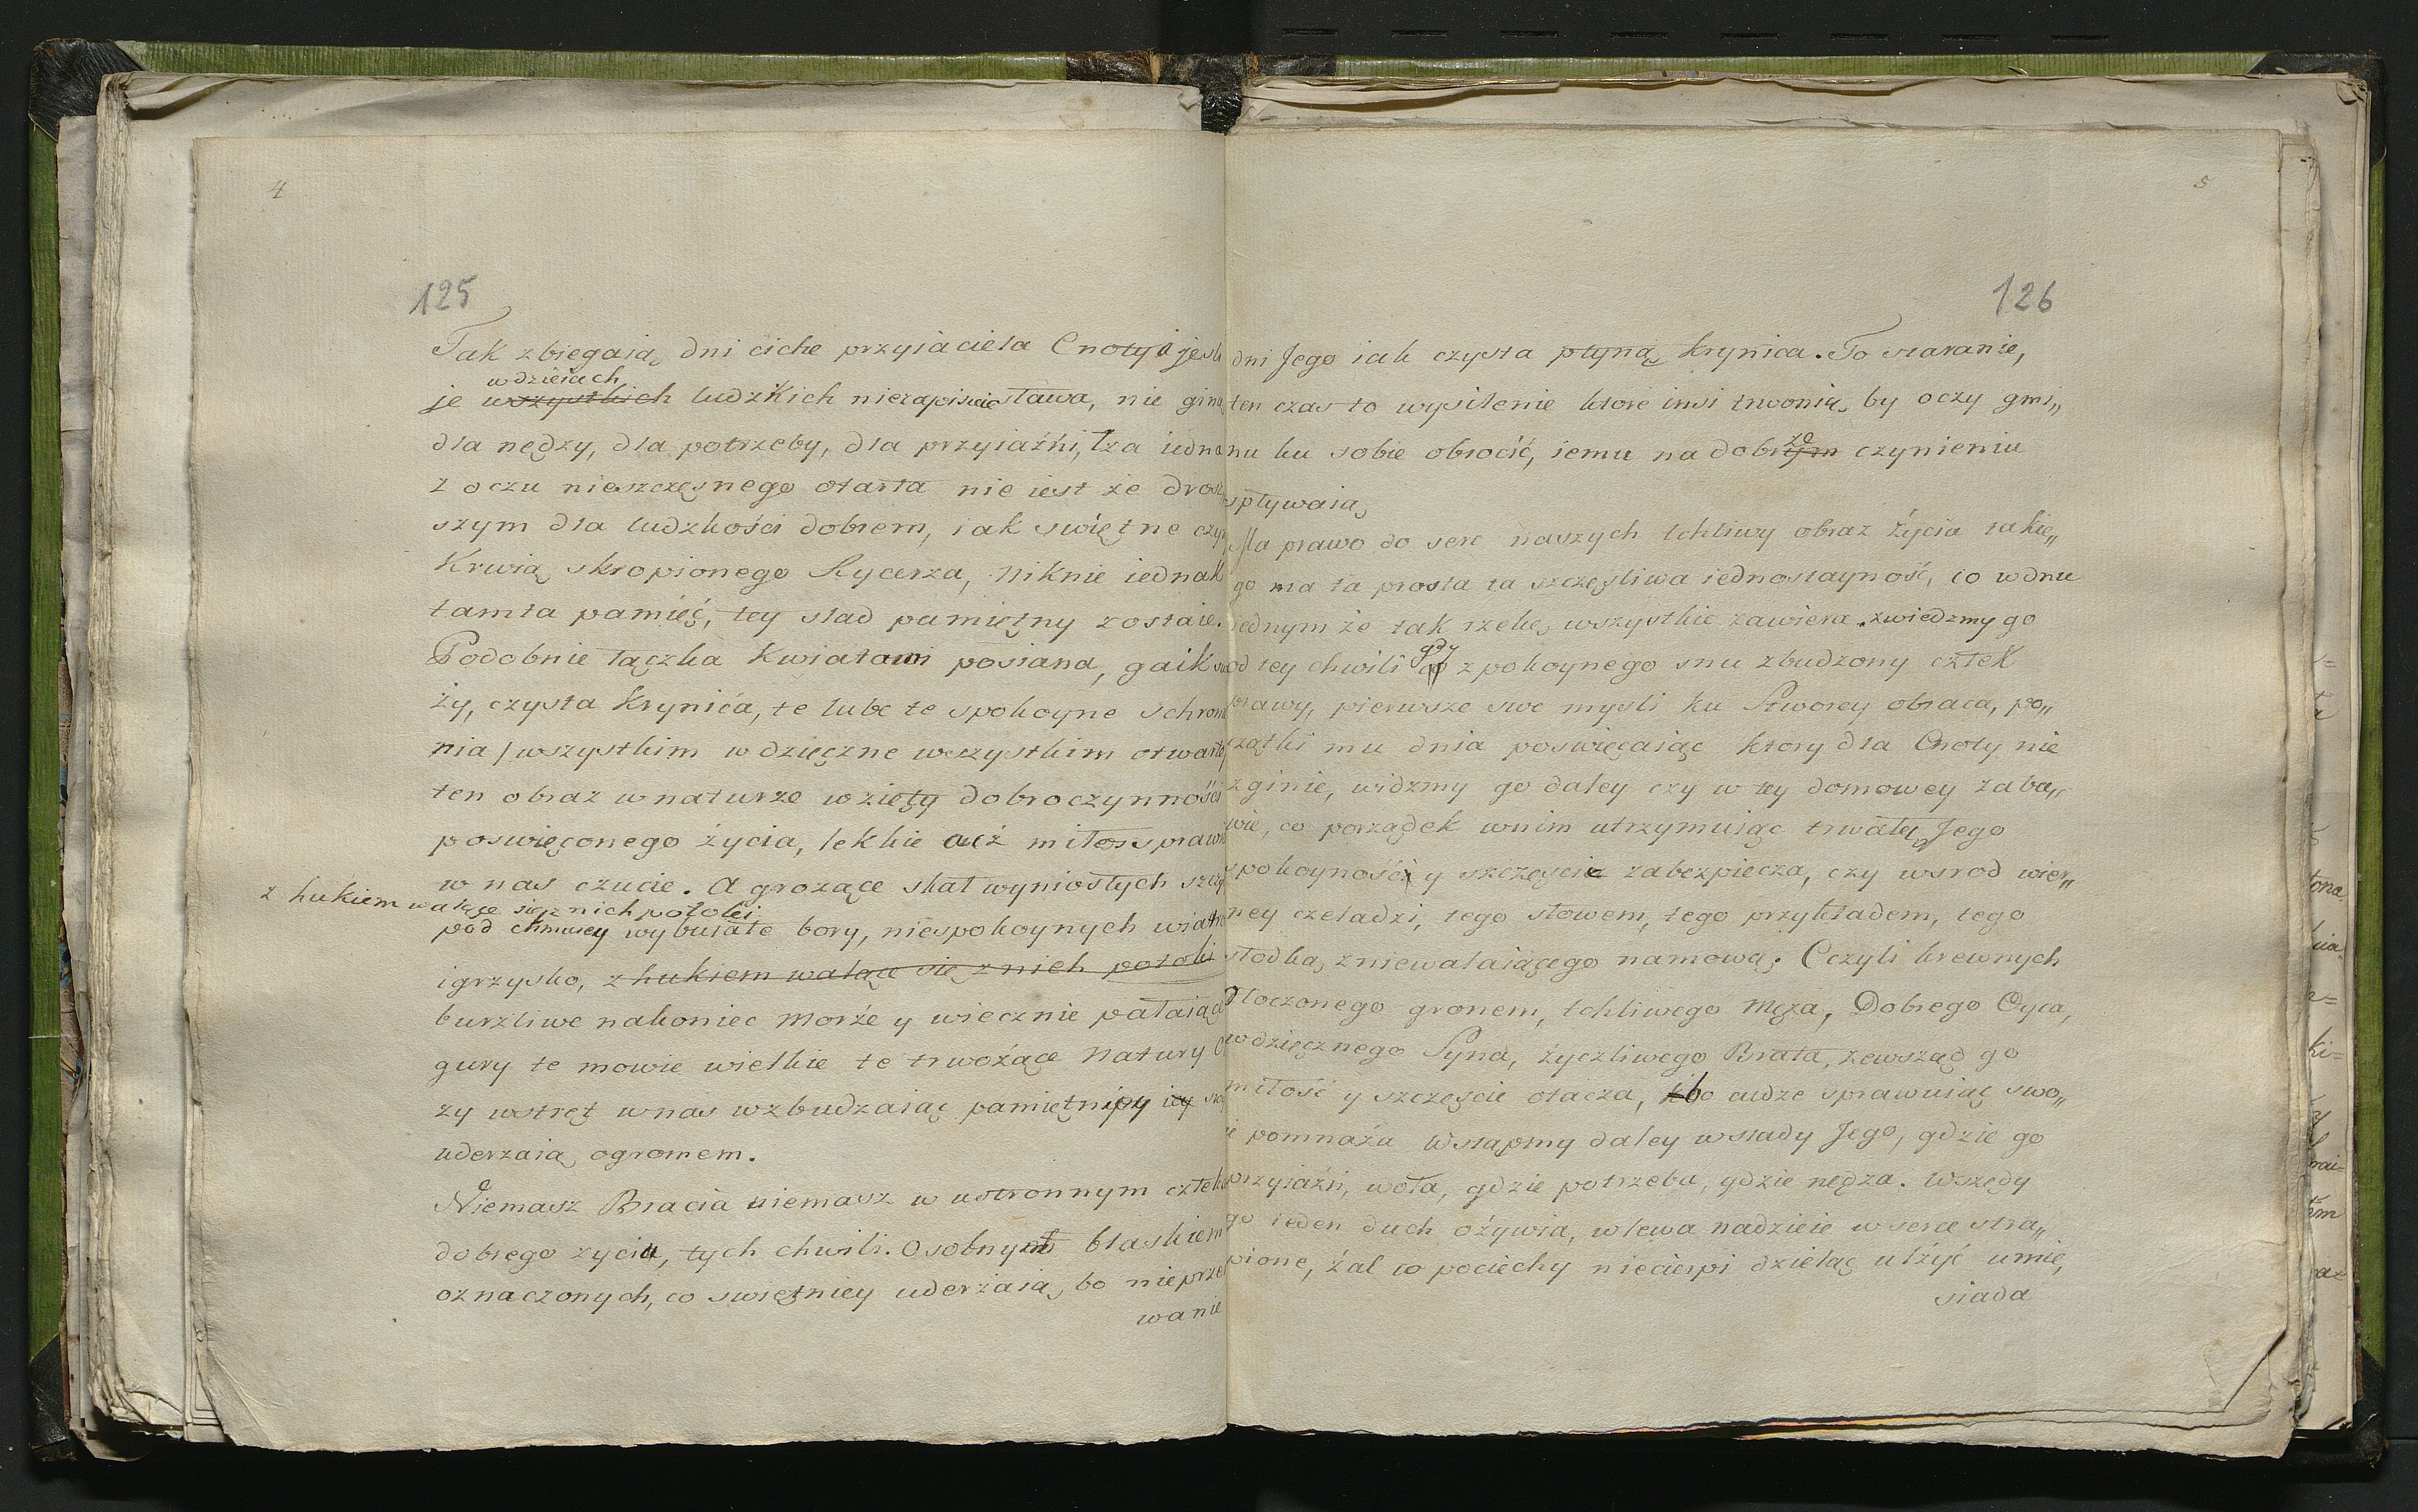 4
125
Tak zbiegaią dni ciche przyiaciela Cnoty a jesli
wdzieiach
je wszystkich ludzkich niezapisuie sława, nie giną
dla nędzy, dla potrzeby, dla przyiaźni, łza iedna
z oczu nieszczęsnego otarta nie iest że drosz
szym dla ludzkości dobrem, iak swiętne czyn
Krwią skropionego Rycerza, niknie iednak
tamta pamięć, tey slad pamiętny zostaie.
Podobnie łączka kwiatami posiana, gaik
ży, czysta Krynića, te lube te spokoyne schro
nia / wszystkim wdzięczne wszystkim otwarte
ten obraz w naturze wzięty dobroczynności
poswięconego życia, lekkie acz miłe sprawu
w nas czucie. A grożące skał wyniosłych szczy
z hukiem walące się z nich potoki
pod chmury wybuiałe bory, niespokoynych wiatro
igrzysko, z hukiem walące się z nich potoki
burzliwe nakoniec morze y wiecznie pałaiące
gury te mowie wielkie te trwożące Natury
zy wstręt w nas wzbudzaiąc pamiętni icy
uderzaią ogromem.
Niemasz Bracia niemasz w ustronnym człeka
dobrego zycia, tych chwili osobnym blaskiem
oznaczonych, co swietniey uderzaią, bo nieprze
wanie
5
126
dni Jego iak czysta płyną krynica. To staranie,
ten czas to wysilenie ktore insi trwonią, by oczy gmi„
nu ku sobie obrocić, iemu na dobrym czynieniu
ze
spływaią
Ma prawo do serc naszych tchliwy obraz życia takie„
go ma ta prosta ta szczęsliwa iednostayność, co w dniu
iednym że tak rzekę, wszystkie zawiera. zwiedzmy go
od tey chwili gdy z pokoynego snu zbudzony człek
prawy, pierwsze swe mysli ku Stworcy obraca, po„
czątki mu dnia poswięcaiąc ktory dla Cnoty nie
zginie, widzmy go daley czy w tey domowey zaba„
wie, co porządek w nim utrzymuiąc trwałą Jego
spokoyność y szczęscie zabezpiecza, czy wsrod wier„
ney czeladzi, tego słowem, tego przykładem, tego
słodką zniewalaiącego namową. Czyli krewnych
tłoczonego gronem, tchliwego Męża, Dobrego Oyca,
wdzięcznego Syna, życzliwego Brata, zewsząd go
miłość y szczęscie otacza, bo cudze sprawuiąc swo„
ie pomnaża Wstąpmy daley w slady Jego, gdzie go
przyiaźń, woła, gdzie potrzeba, gdzie nędza. Wszędy
go ieden duch ożywia, wlewa nadzieie w serce stra„
pione, żal co pociechy niecierpi dzieląc ulżyć umie,
siada